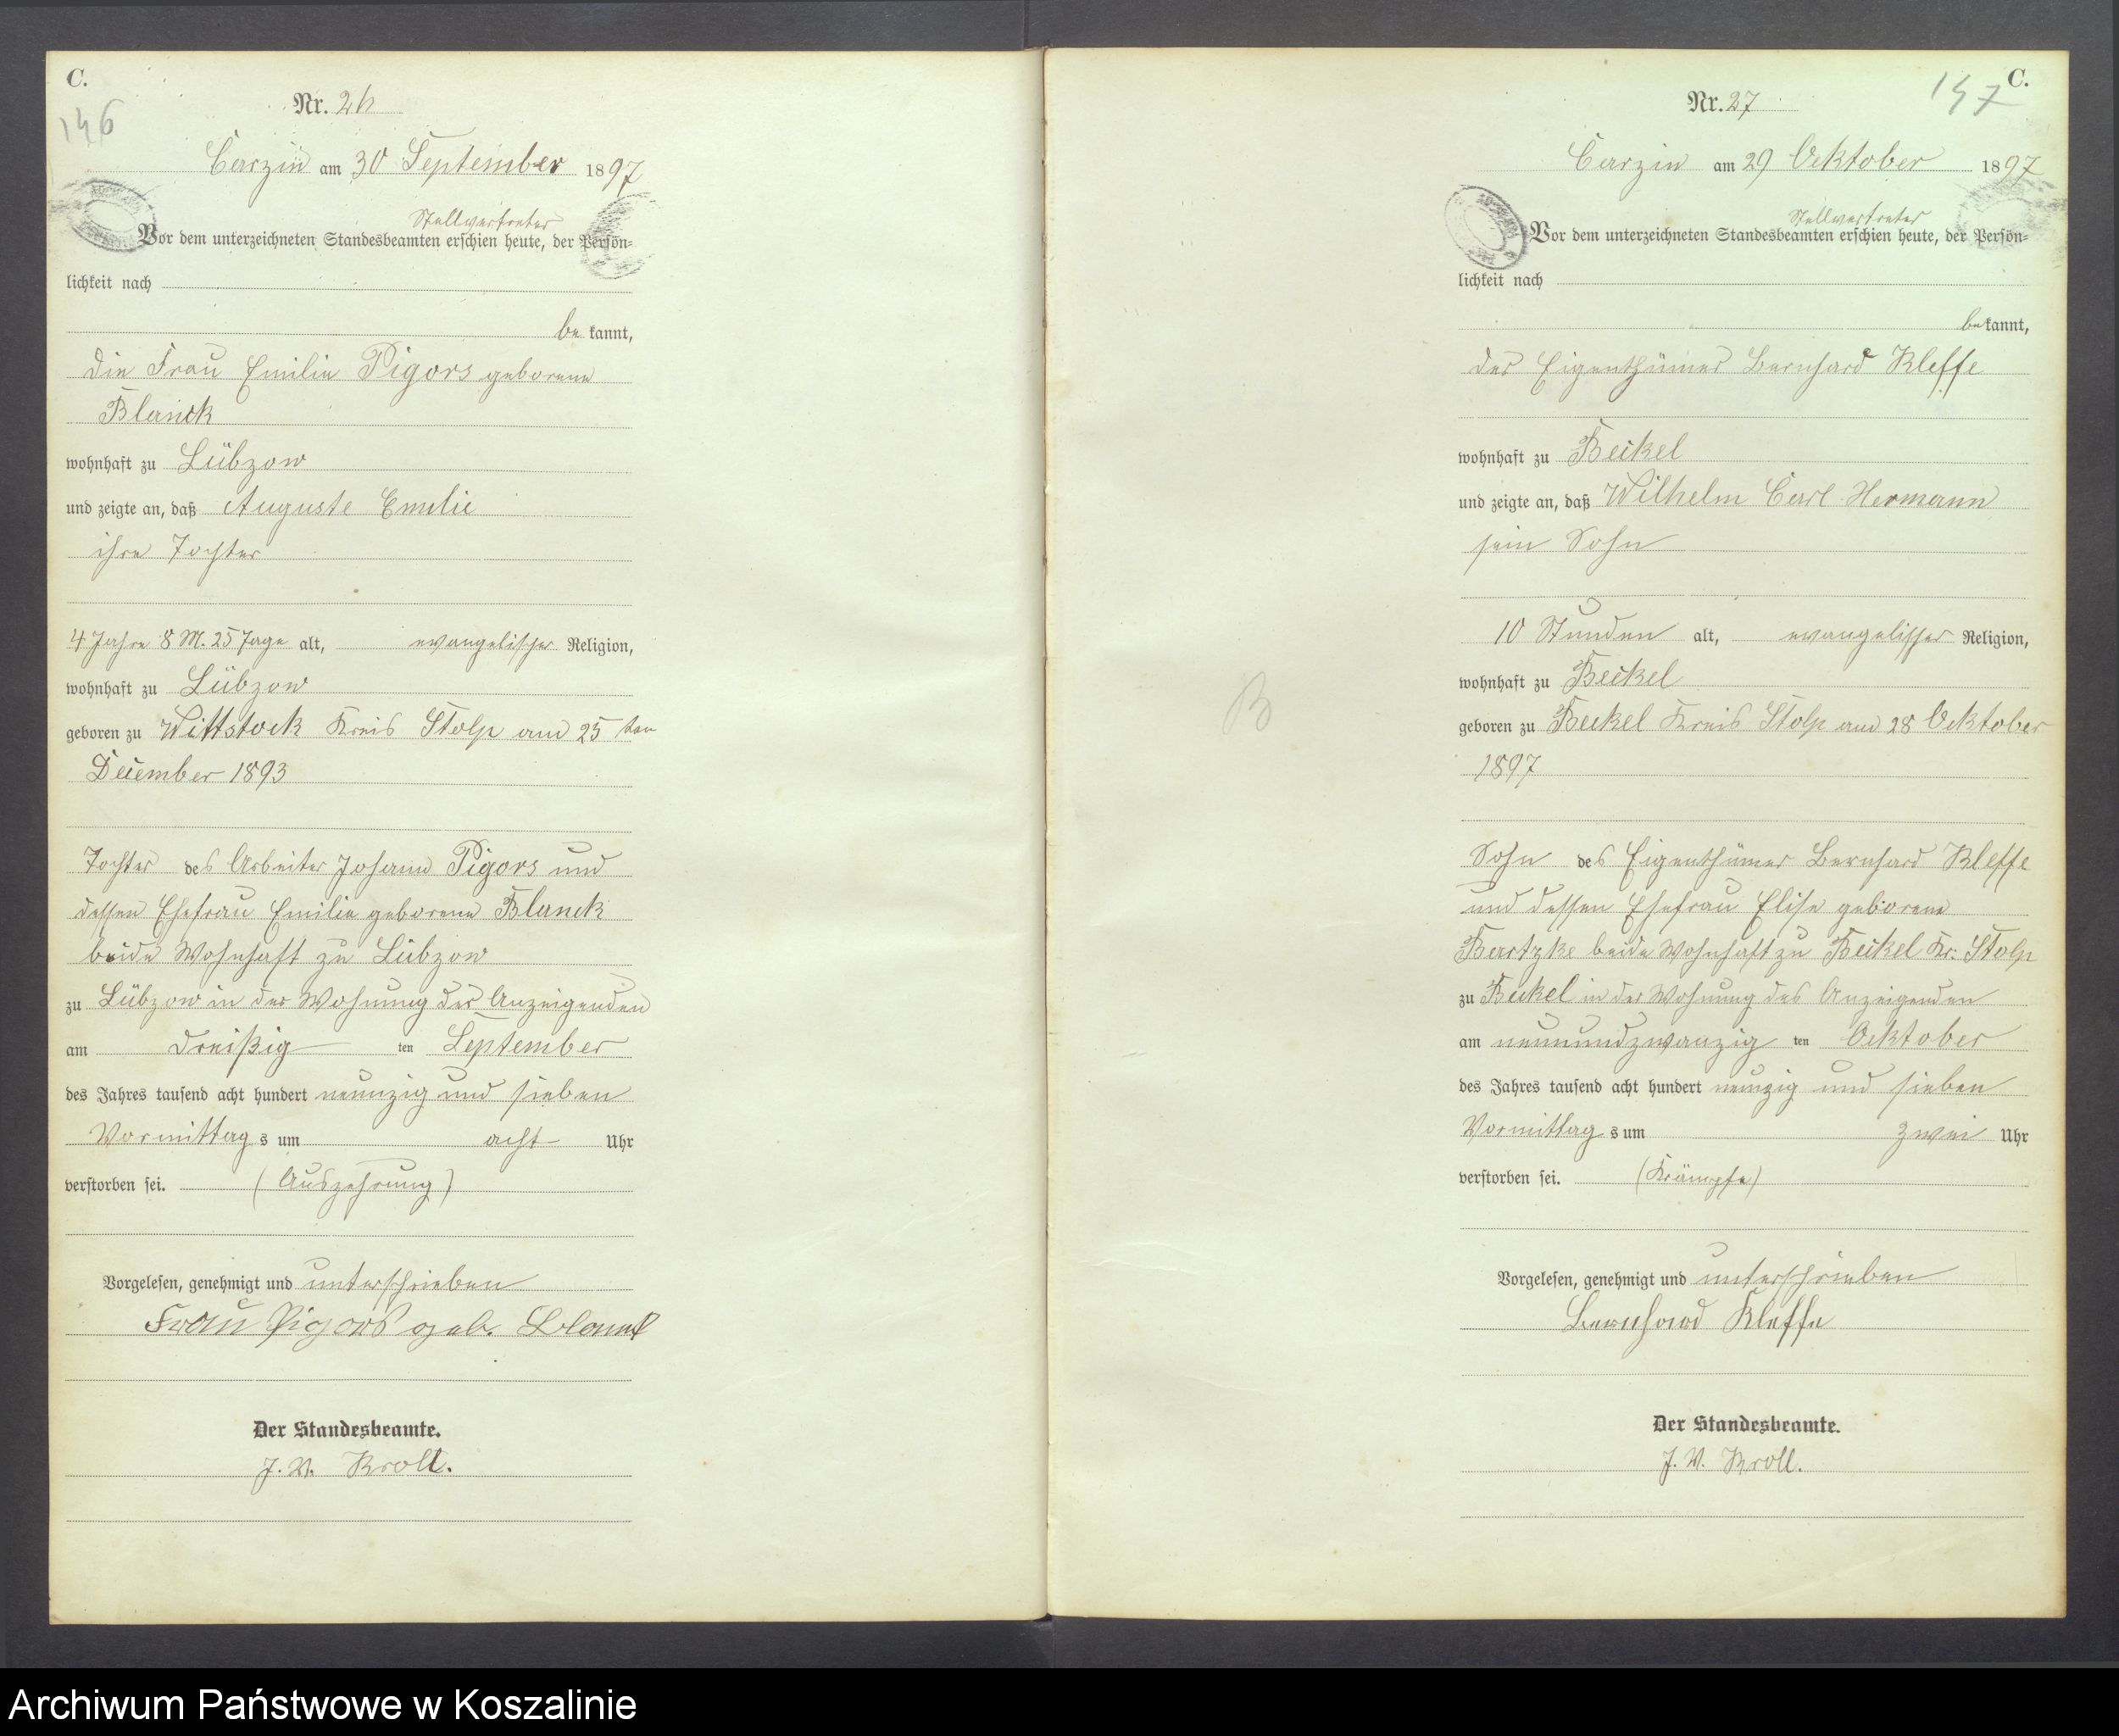 C.
146
Nr. 26
Carzin am 30 September 1897
Stellvertreter
Vor dem unterzeichneten Standesbeamten erschien heute, der Persön-
lichkeit nach
be kannt,
die Frau Emilie Pigors geborene
Blanck
wohnhaft zu Lübzow
und zeigte an, daß Auguste Emilie
ihre Tochter
4 Jahre 8 M. 25 Tage alt, evangelischer Religion,
wohnhaft zu Lübzow
geboren zu Wittstock Kreis Stolp am 25 ten
December 1893
Tochter des Arbeiter Johann Pigors und
dessen Ehefrau Emilie geborene Blanck
beide Wohnhaft zu Lübzow
zu Lübzow in der Wohnung der Anzeigenden
am dreißig ten September
des Jahres tausend acht hundert neunzig und sieben
Vormittag s um acht Uhr
verstorben sei. (Auszehrung)
Vorgelesen, genehmigt und unterschrieben
Frau Pigors geb. Blanck
Der Standesbeamte.
J. V. Kroll.
C.
147
Nr. 27
Carzin am 29 Ocktober 1897
Stellvertreter
Vor dem unterzeichneten Standesbeamten erschien heute, der Persön-
lichkeit nach
bekannt,
der Eigenthümer Bernhard Kleffe
wohnhaft zu Beckel
und zeigte an, daß Wilhelm Carl Hermann
sein Sohn
10 Stunden alt, evangelischer Religion,
wohnhaft zu Beckel
geboren zu Beckel Kreis Stolp am 28 Ocktober
1897
B
Sohn des Eigenthümer Bernhard Kleffe
und dessen Ehefrau Elise geborene
Bartzke beide Wohnhaft zu Beckel Kr: Stolp
zu Beckel in der Wohnung des Anzeigenden
am neunundzwanzig ten Ocktober
des Jahres tausend acht hundert neunzig und sieben
Vormittag s um zwei Uhr
verstorben sei. (Krämpfe)
Vorgelesen, genehmigt und unterschrieben
Bernhard Kleffe
Der Standesbeamte.
J. V. Kroll.
Archiwum Państwowe w Koszalinie